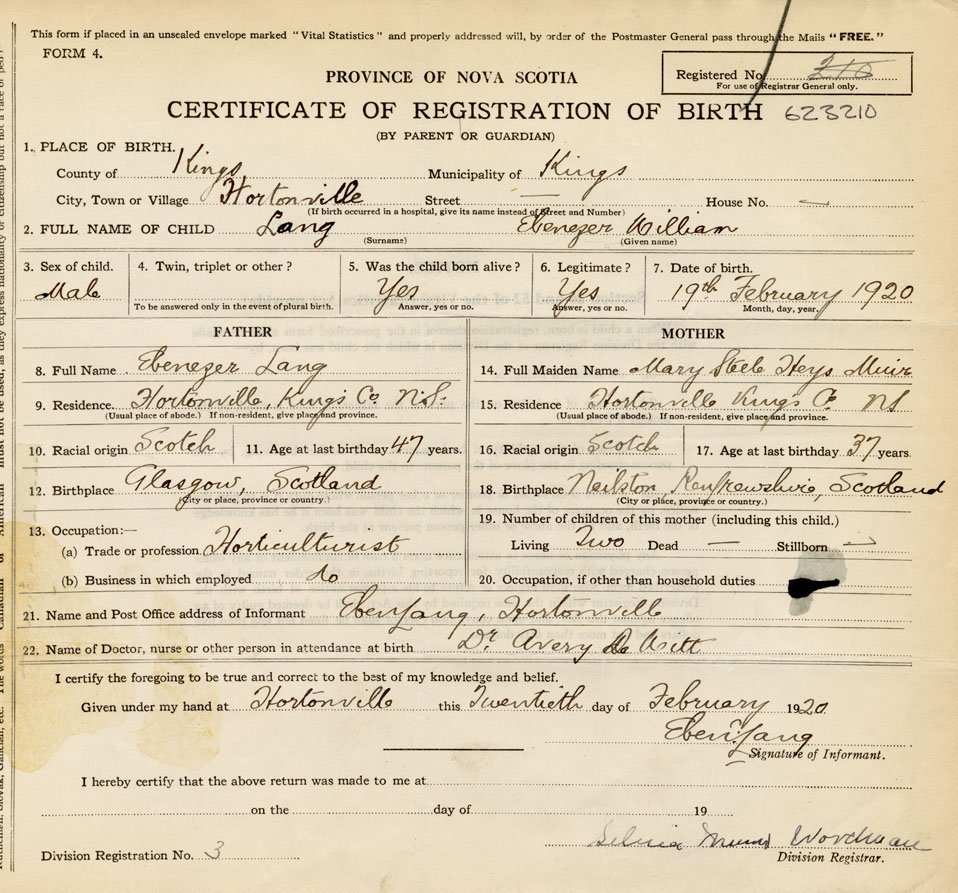 This form if placed in an unsealed envelope marked "Vital Statistics" and properly addressed will, by order of the Postmaster General pass through the Mails "FREE."
FORM 4.
Registered No. 210
For use of Registrar General only.
PROVINCE OF NOVA SCOTIA
CERTIFICATE OF REGISTRATION OF BIRTH 623210
(BY PARENT OR GUARDIAN)
1. PLACE OF BIRTH.
County of Kings Municipality of Kings
City, Town or Village Hortonville Street — House No. —
(If birth occurred in a hospital, give its name instead of Street and Number)
2. FULL NAME OF CHILD Lang Ebenezer William
(Surname) (Given name)
3. Sex of child. 4. Twin, triplet or other? 5. Was the child born alive? 6. Legitimate? 7. Date of birth.
Male Yes Yes 19th February 1920
To be answered only in the event of plural birth. Answer, yes or no. Answer, yes or no. Month, day, year.
FATHER MOTHER
8. Full Name Ebenezer Lang 14. Full Maiden Name Mary Steele Heys Muir
9. Residence. Hortonville, Kings Co. N.S. 15. Residence Hortonville Kings Co NS
(Usual place of abode.) If non-resident, give place and province. (Usual place of abode.) If non-resident, give place and province.
10. Racial origin Scotch 11. Age at last birthday 47 years. 16. Racial origin Scotch 17. Age at last birthday 37 years.
12. Birthplace Glasgow, Scotland 18. Birthplace Neilston, Renfrewshire, Scotland
(City or place, province or country.) (City or place, province or country.)
13. Occupation:— 19. Number of children of this mother (including this child.)
(a) Trade or profession Horticulturist Living Two Dead — Stillborn —
(b) Business in which employed do 20. Occupation, if other than household duties
21. Name and Post Office address of Informant Eben Lang, Hortonville
22. Name of Doctor, nurse or other person in attendance at birth Dr. Avery De Witt
I certify the foregoing to be true and correct to the best of my knowledge and belief.
Given under my hand at Hortonville this Twentieth day of February 1920
Eben Lang
Signature of Informant.
I hereby certify that the above return was made to me at
on the day of 19
Woodman
Division Registration No. 3 Division Registrar.